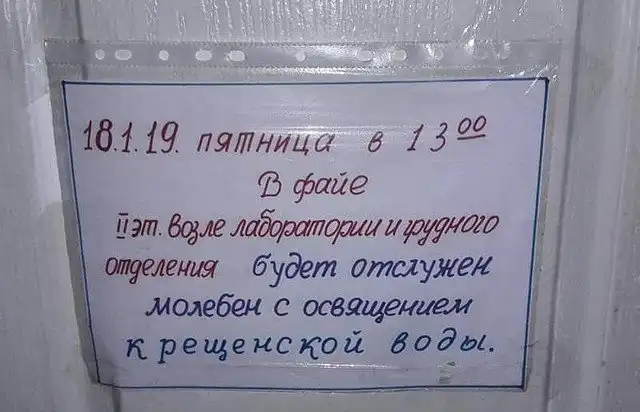 18.1.19. пятница в 13 00
В файе
II эт. возле лаборатории и грудного
отделения будет отслужен
молебен с освящением
крещенской воды.